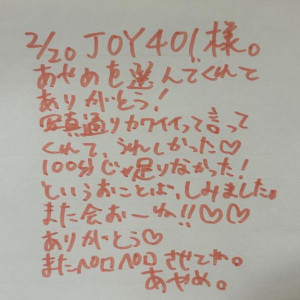 2/20. JOY401様。
あやめを選んでくれて
ありがとう!
写真通りカワイイって言って
くれて、うれしかった♡
100分じゃ足りなかった!
というおことば、しみました。
また会おーね!!♡♡
ありがとう♡
またペロペロさせてね。
あやめ。